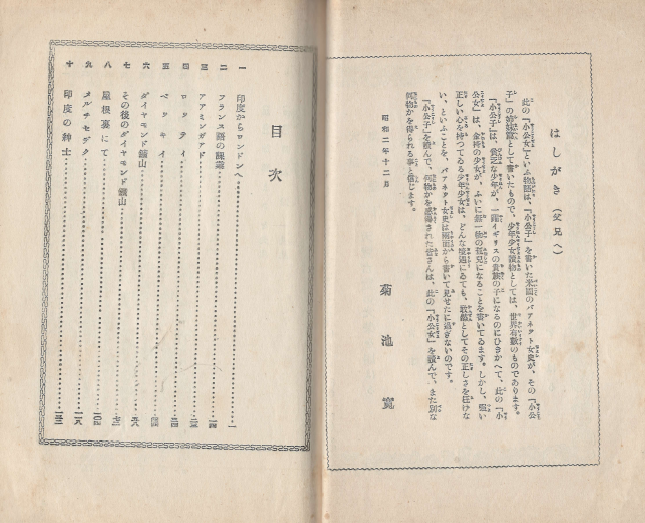 はしがき（父兄へ）
此の『小公女』といふ物語は、『小公子』を書いた米国のバアネット女史が、その『小公
子』の姉妹篇として書いたもので、少年少女読物としては、世界有数のものであります。
『小公子』は、貧乏な少年が、一躍イギリスの貴族の子になるのにひきかへて、此の『小
公女』は、金持の少女が、ふいに無一物の孤児になることを書いてゐます。しかし、強い
正しい心を持つてゐる少年少女は、どんな境遇にゐても、敢然としてその正しさを枉げな
い、といふことを、バアネット女史は両面から書いて見せたに過ぎないのです。
『小公子』を読んで、何物かを感得された皆さんは、此の『小公女』を読んで、また別な
何物かを得られる事と信じます。
昭和二年十二月
菊池寛
目次
一 印度からロンドンへ……一
二 フランス語の課業……一四
三 アアミンガアド……二三
四 ロッティ……三四
五 ベッキイ……四四
六 ダイヤモンド鉱山……五八
七 その後のダイヤモンド鉱山……七三
八 屋根裏にて……一〇四
九 メルチセデク……一一八
十 印度の紳士……一三三